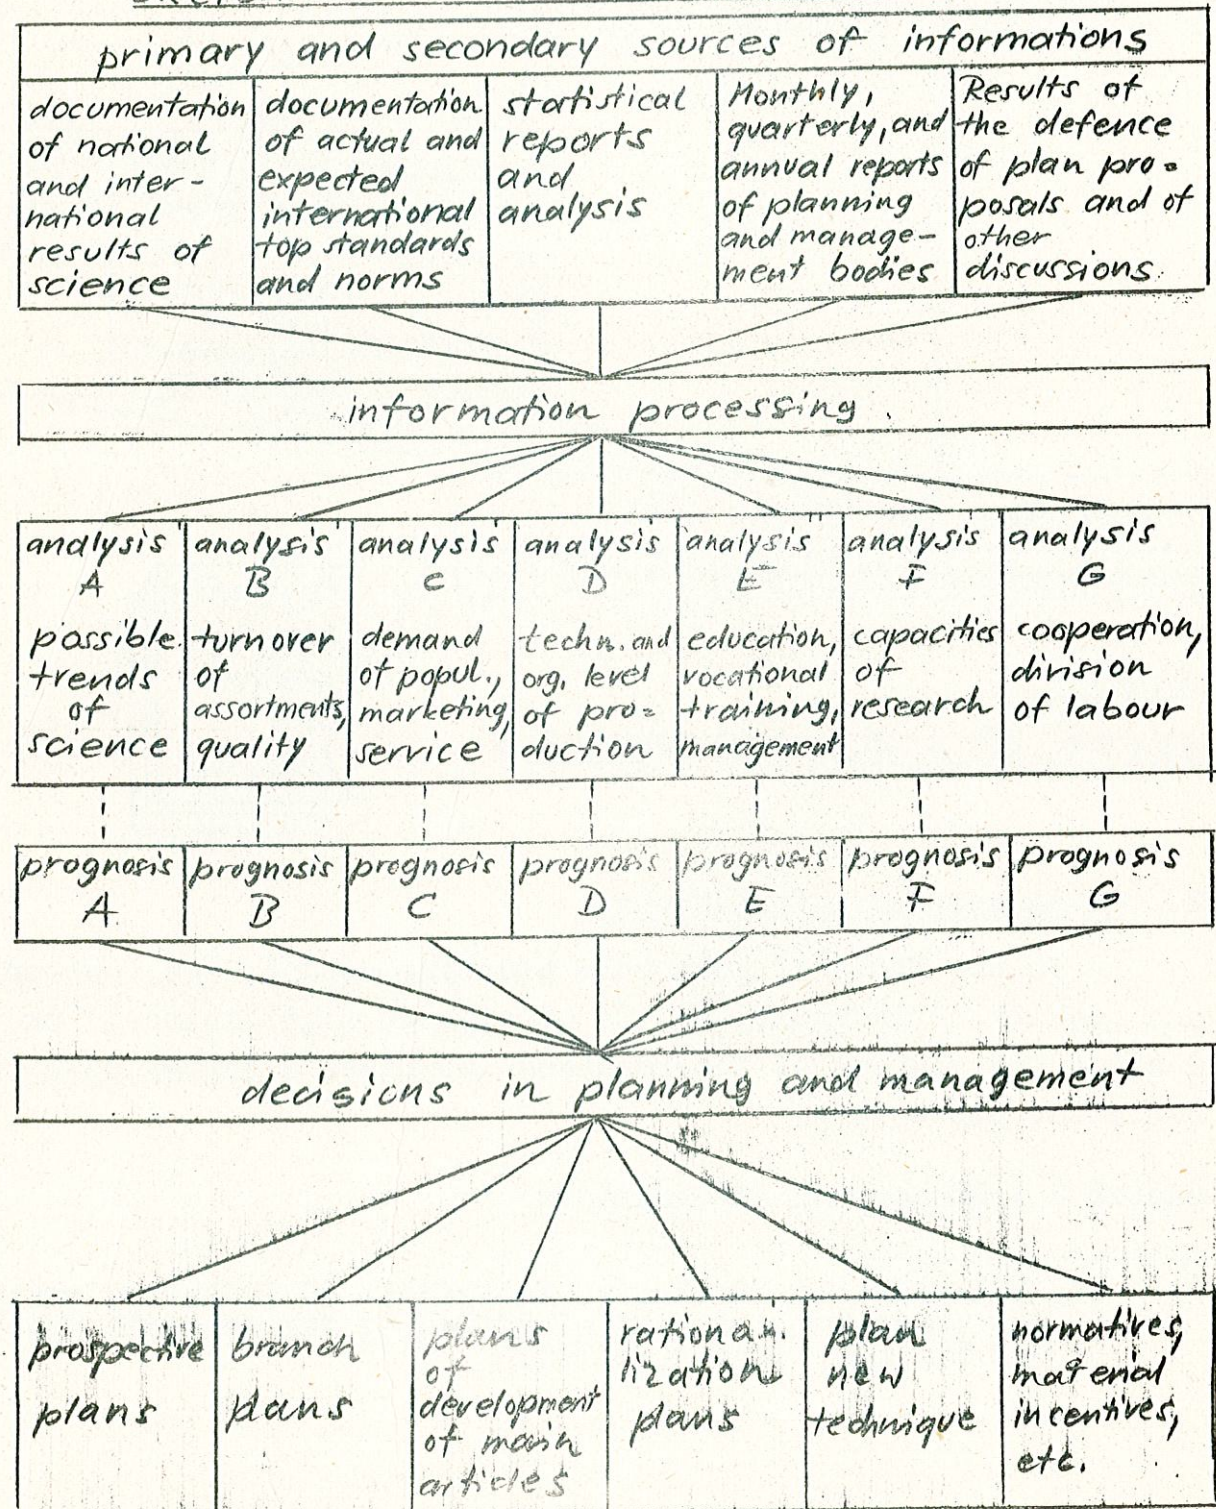 primary and secondary sources of informations
documentation
of national
and inter-
national
results of
science
documentation
of actual and
expected
international
top standards
and norms
statistical
reports
and
analysis
Monthly,
quarterly, and
annual reports
of planning
and manage-
ment bodies
Results of
the defence
of plan pro=
posals and of
other
discussions.
information processing
analysis
A
possible
trends
of
science
analysis
B
turnover
of
assortments,
quality
analysis
C
demand
of popul.,
marketing,
service
analysis
D
techn. and
org. level
of pro=
duction
analysis
E
education,
vocational
training,
management
analysis
F
capacities
of
research
analysis
G
cooperation,
division
of labour
prognosis
A
prognosis
B
prognosis
C
prognosis
D
prognosis
E
prognosis
F
prognosis
G
decisions in planning and management
prospective
plans
branch
plans
plans
of
development
of main
articles
lization
plans
plan
new
technique
normatives,
material
incentives,
etc.